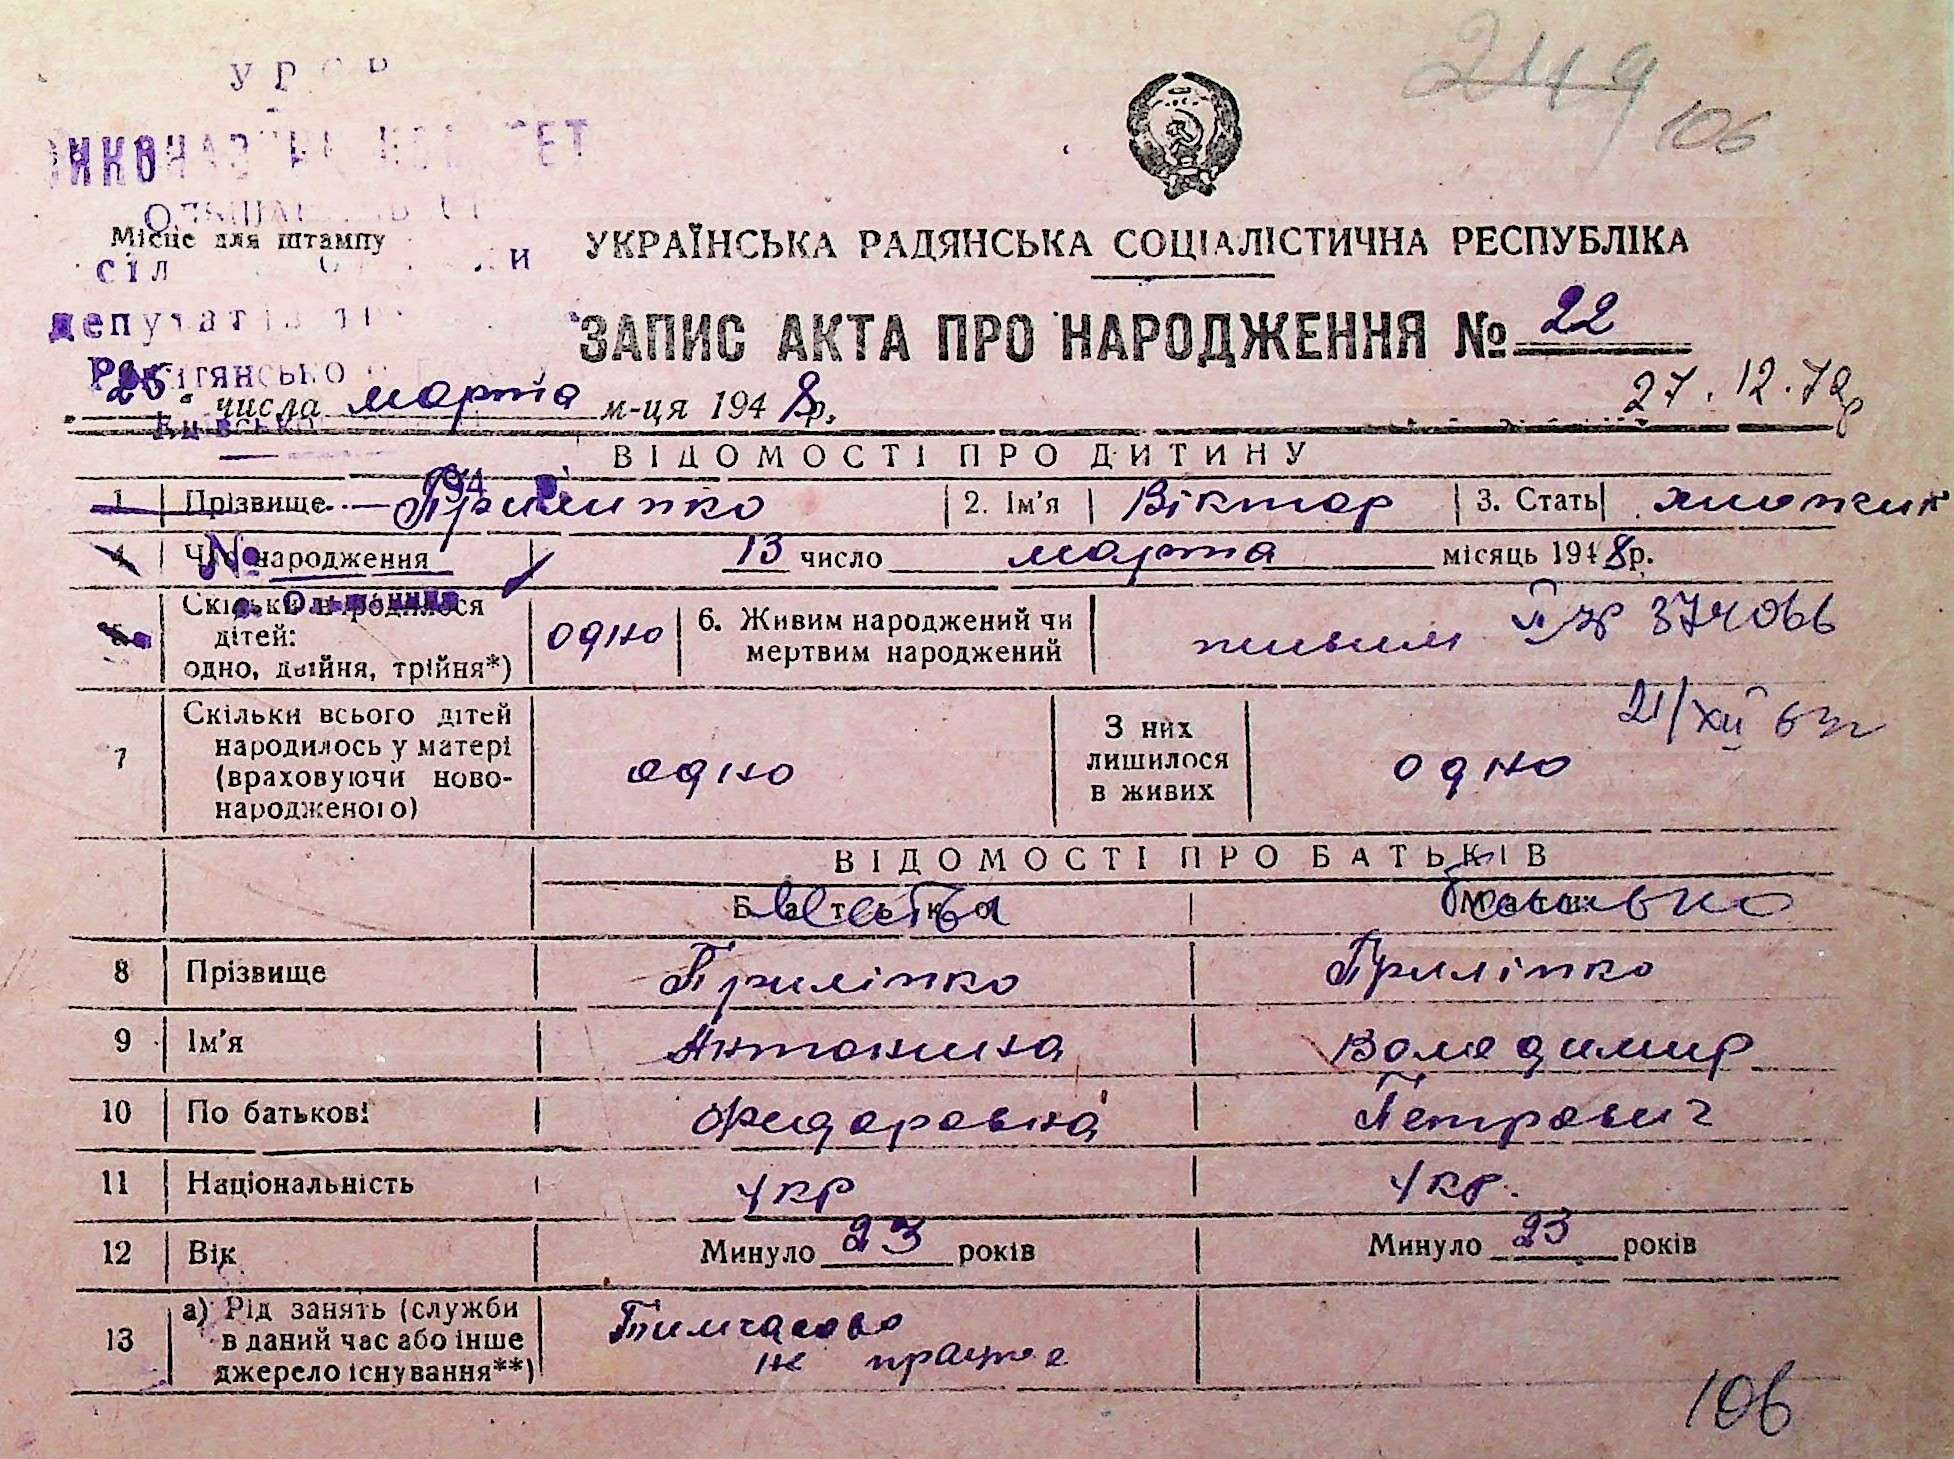 У Р С Р
ОЛЬШАН
Місце для штампу
УКРАЇНСЬКА РАДЯНСЬКА СОЦІАЛІСТИЧНА РЕСПУБЛІКА
сіл
депутатів
ЗАПИС АКТА ПРО НАРОДЖЕННЯ № 22
„26“ числа марта м-ця 1948 р.
27.12.72р
ВІДОМОСТІ ПРО ДИТИНУ
1 Прізвище Приліпко 2. Ім'я Віктор 3. Стать
4 Час народження 13 число марта місяць 1948 р.
5 Скільки народилося дітей: одно, двійня, трійня*) одно 6. Живим народжений чи мертвим народжений живим
374066
21/XII 67г
7 Скільки всього дітей народилось у матері (враховуючи новонародженого) одно З них лишилося в живих одно
ВІДОМОСТІ ПРО БАТЬКІВ
Батько Мати
Мати батько
8 Прізвище Приліпко Приліпко
9 Ім'я Антонина Володимир
10 По батькові Федоровна Петрович
11 Національність укр укр.
12 Вік Минуло 23 років Минуло 23 років
13 а) Рід занять (служби в даний час або інше джерело існування**) Тимчасово не працює
2119
106
106